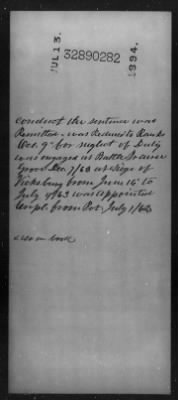 JUL 13. 32890282 1994.
conduct the sentence was
Remitted. was Reduced to Ranks
Oct. 9" for neglect of Duty
was engaged as Battle Prairie
Grove Dec 7/62 at Siege of
Vicksburg from June 15" to
July 4/63 was appointed
Corpl. from Pvt. July 1/62
also on book